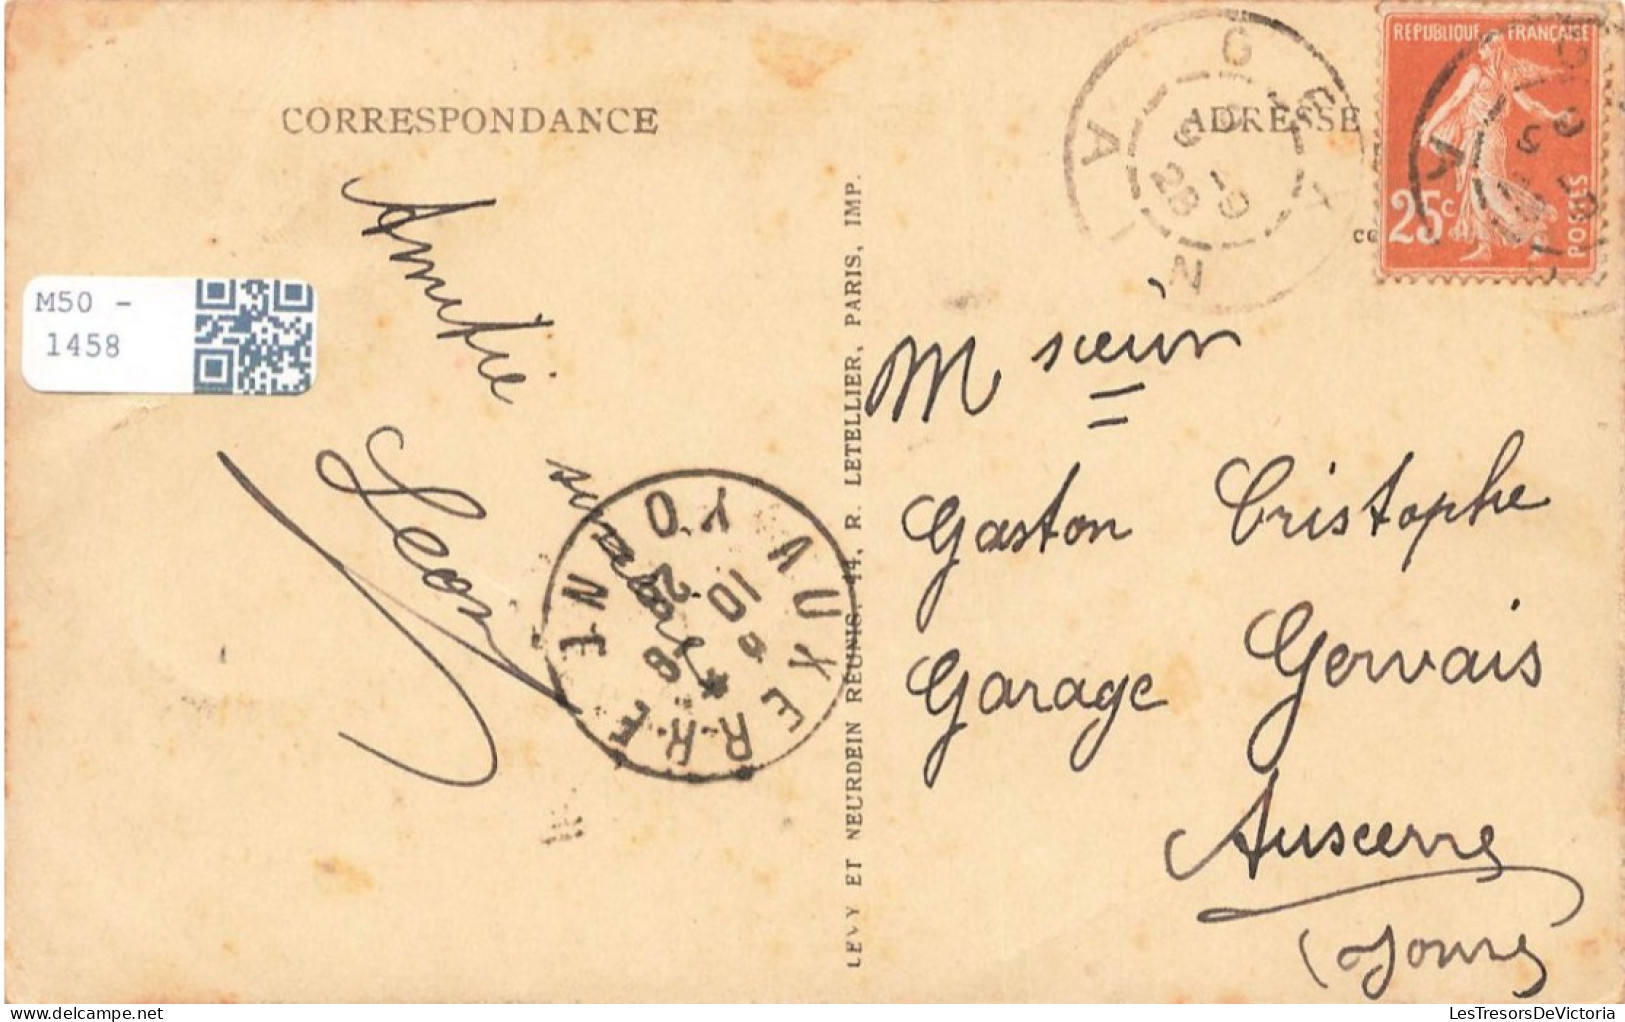 CORRESPONDANCE
ADRESSE
REPUBLIQUE FRANÇAISE
25c
POSTES
GEX
AIN
M50 -
1458
Amitié
Leon
AUXERRE
YONNE
LEVY ET NEURDEIN RÉUNIS, 44, R. LETELLIER, PARIS, IMP.
M
Gaston Cristophe
Garage Gervais
Auscerre
(Yonne)
LesTresorsDeVictoria